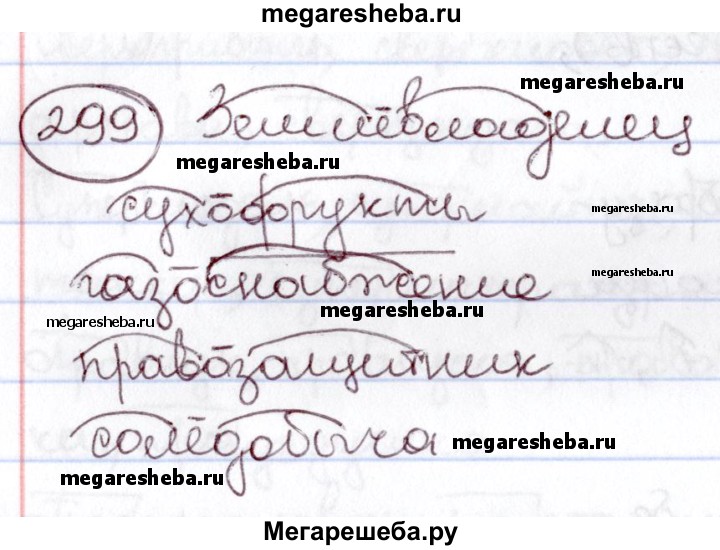 megaresheba.ru
299 Землевладелец
megaresheba.ru
megaresheba.ru
сухофрукты
megaresheba.ru
газоснабжение
megaresheba.ru
megaresheba.ru
megaresheba.ru
правозащитник
соледобыча
megaresheba.ru
megaresheba.ru
Мегарешеба.ру